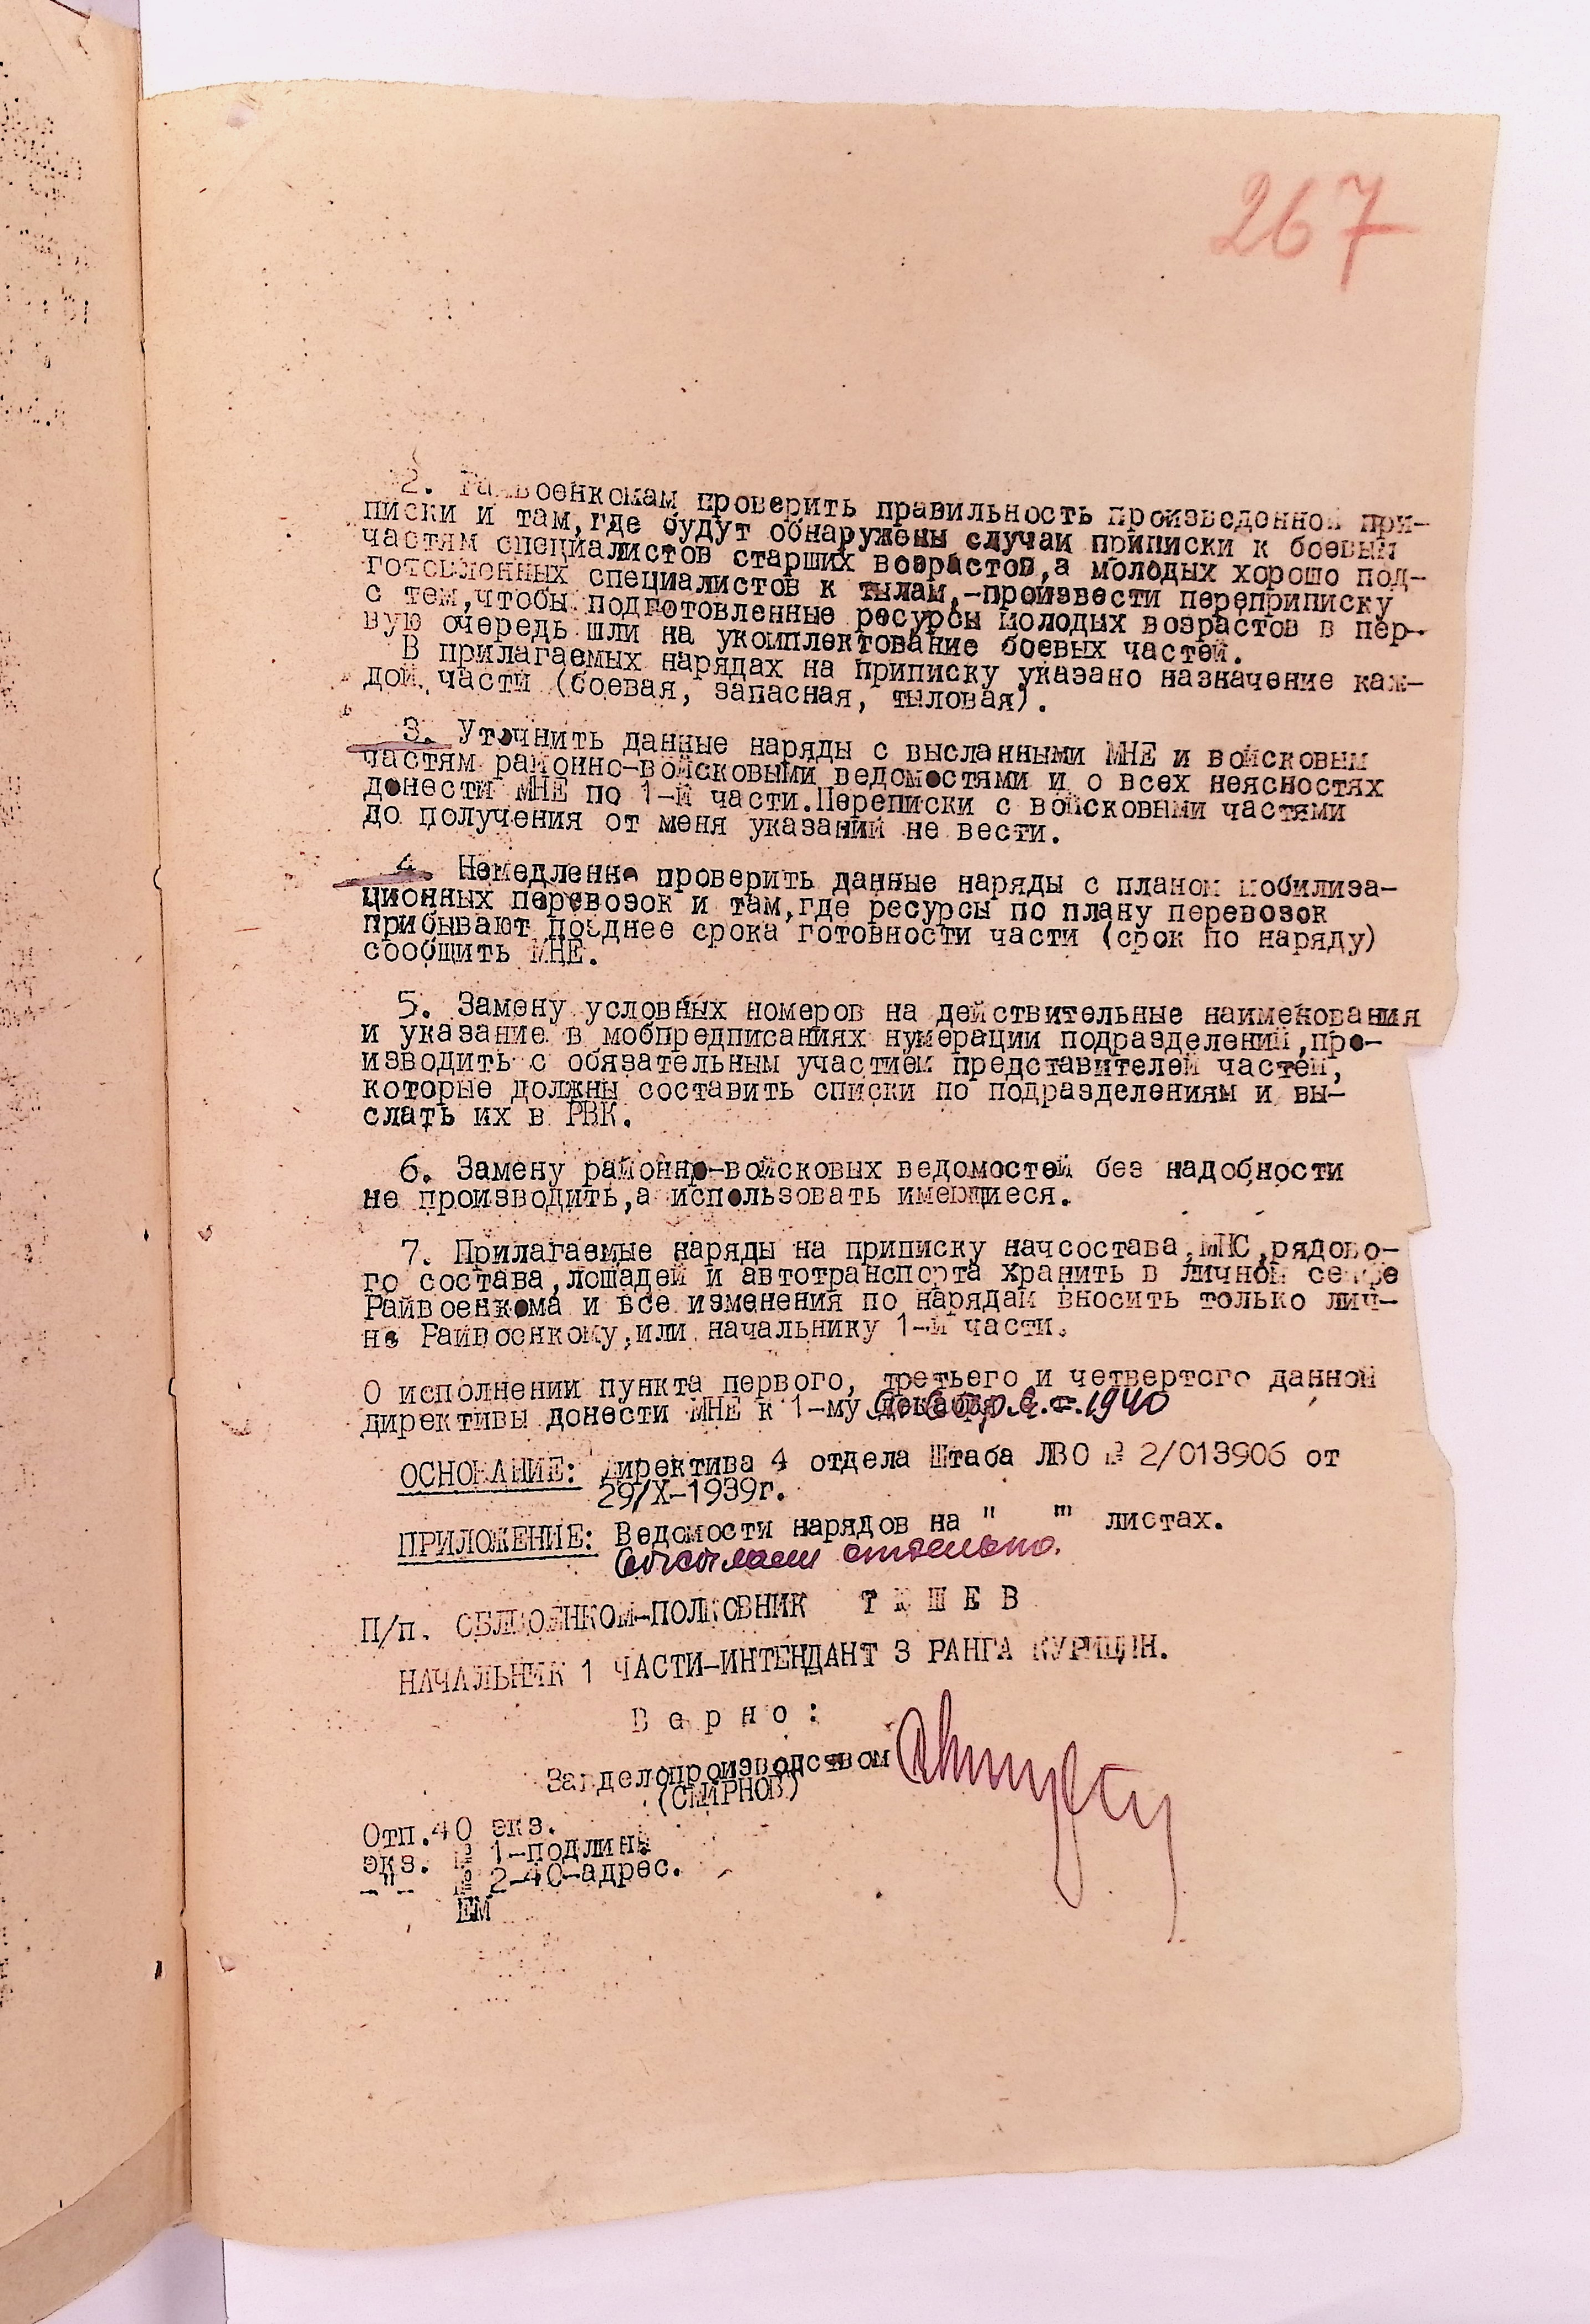 267
2. Райвоенкомам проверить правильность произведенной при-
писки и там,где будут обнаружены случаи приписки к боевым
частям специалистов старших возрастов,а молодых хорошо под-
готовленных специалистов к тылам,-произвести переприписку
с тем,чтобы подготовленные ресурсы молодых возрастов в пер-
вую очередь шли на укомплектование боевых частей.
В прилагаемых нарядах на приписку указано назначение каж-
дой части (боевая, запасная, тыловая).
3. Уточнить данные наряды с высланными МНЕ и войсковым
частям районно-войсковыми ведомостями и о всех неясностях
донести МНЕ по 1-й части.Переписки с войсковыми частями
до получения от меня указаний не вести.
4. Немедленно проверить данные наряды с планом мобилиза-
ционных перевозок и там,где ресурсы по плану перевозок
прибывают позднее срока готовности части (срок по наряду)
сообщить МНЕ.
5. Замену условных номеров на действительные наименования
и указание в мобпредписаниях нумерации подразделений,про-
изводить с обязательным участием представителей частей,
которые должны составить списки по подразделениям и вы-
слать их в РВК.
6. Замену районно-войсковых ведомостей без надобности
не производить,а использовать имеющиеся.
7. Прилагаемые наряды на приписку начсостава,МНС,рядово-
го состава,лошадей и автотранспорта хранить в личном сейфе
Райвоенкома и все изменения по нарядам вносить только лич-
но Райвоенкому,или начальнику 1-й части.
О исполнении пункта первого, третьего и четвертого данной
директивы донести МНЕ к 1-му 1940
ОСНОВАНИЕ: Директива 4 отдела Штаба ЛВО № 2/013906 от
29/X-1939г.
ПРИЛОЖЕНИЕ: Ведомости нарядов на " " листах.
П/п. ОБЛВОЕНКОМ-ПОЛКОВНИК
НАЧАЛЬНИК 1 ЧАСТИ-ИНТЕНДАНТ 3 РАНГА КУРИЦИН.
В е р н о :
Завделопроизводством
(СМИРНОВ)
Отп.40 экз.
экз. № 1-подлин.
-"- № 2-40-адрес.
ЕМ